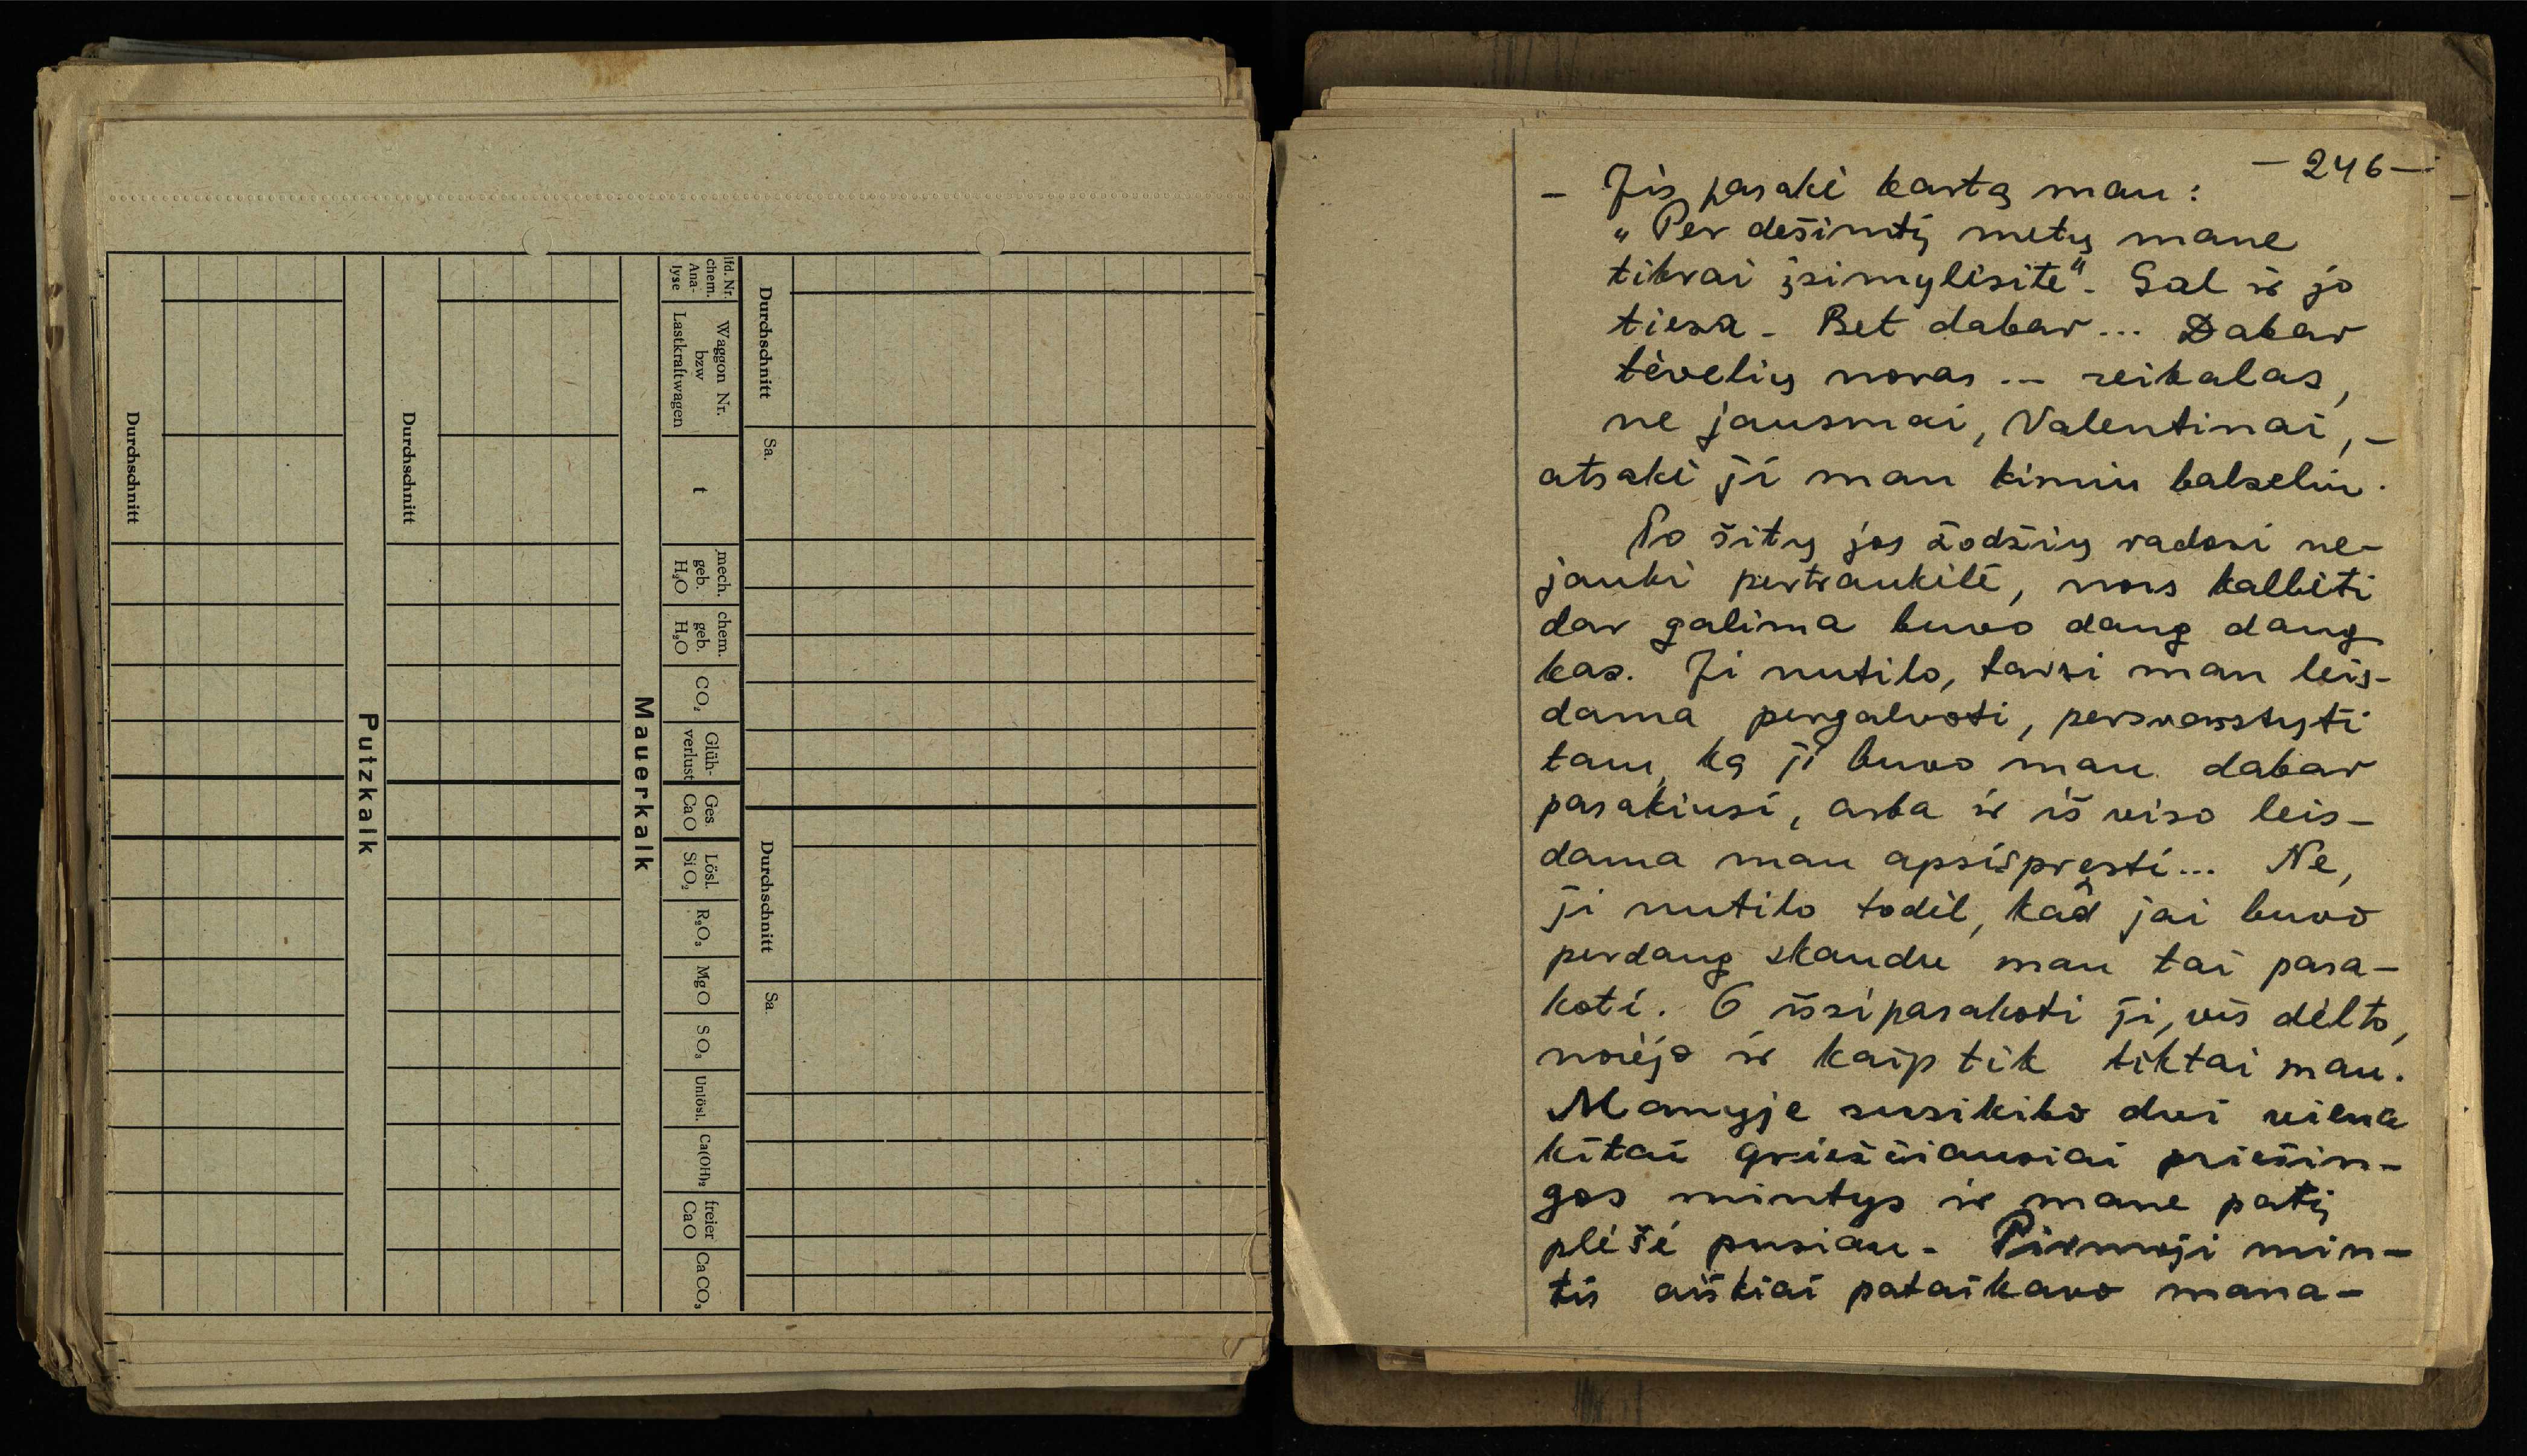 Durchschnitt
Sa.
Durchschnitt
Sa.
lfd. Nr. chem. Ana-lyse
Waggon Nr. bzw Lastkraftwagen
t
mech. geb. H₂O
chem. geb. H₂O
CO₂
Glüh-verlust
Ges. CaO
Lösl. SiO₂
R₂O₃
MgO
SO₃
Unlösl.
Ca(OH)₂
freier CaO
CaCO₃
Mauerkalk
Durchschnitt
Putzkalk
Durchschnitt
— 246 —
– Jis pasakė kartą man:
„Per dešimtį metų mane
tikrai įsimylėsite". Gal ir jo
tiesa. Bet dabar... Dabar
tėvelių noras ... reikalas,
ne jausmai, Valentinai, –
atsakė ji man kimiu balseliu.
Po šitų jos žodžių radosi ne-
jauki pertraukėlė, nors kalbėti
dar galima buvo daug daug
kas. Ji nutilo, tarsi man leis-
dama pergalvoti, persvarstyti
tam, ką ji buvo man dabar
pasakiusi, arba ir iš viso leis-
dama man apsispręsti... Ne,
ji nutilo todėl, kad jai buvo
perdaug skaudu man tai pasa-
koti. O išsipasakoti ji, vis dėlto,
norėjo ir kaip tik tiktai man.
Manyje susikibo dvi viena
kitai griežčiausiai priešin-
gos mintys ir mane patį
plėšė pusiau. Pirmoji min-
tis aiškiai pataikavo mana-